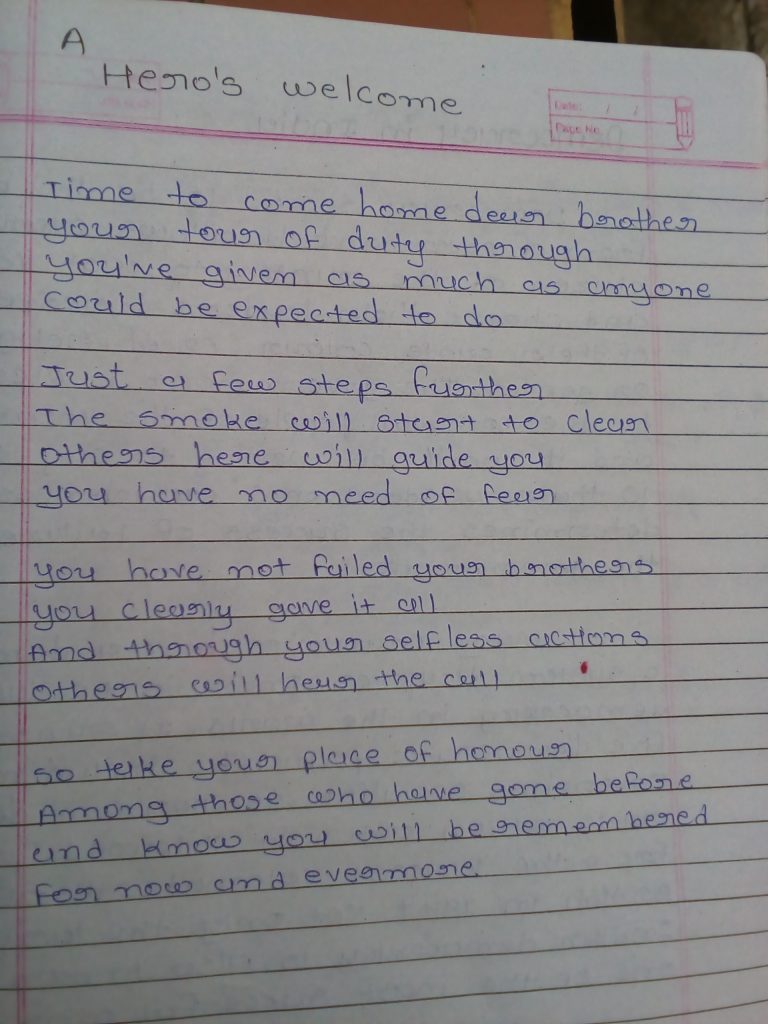 A
Hero's welcome
Date: / /
Page No.
Time to come home dear brother
your tour of duty through
you've given as much as anyone
could be expected to do
Just a few steps further
The smoke will start to clear
others here will guide you
you have no need of fear
you have not failed your brothers
you clearly gave it all
And through your selfless actions
others will hear the call
so take your place of honour
Among those who have gone before
and know you will be remembered
For now and evermore.